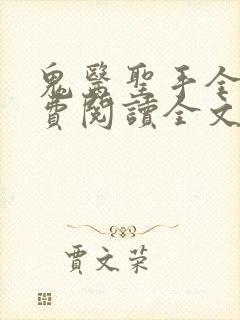 鬼醫聖手全
費閱讀全文
賈文荣